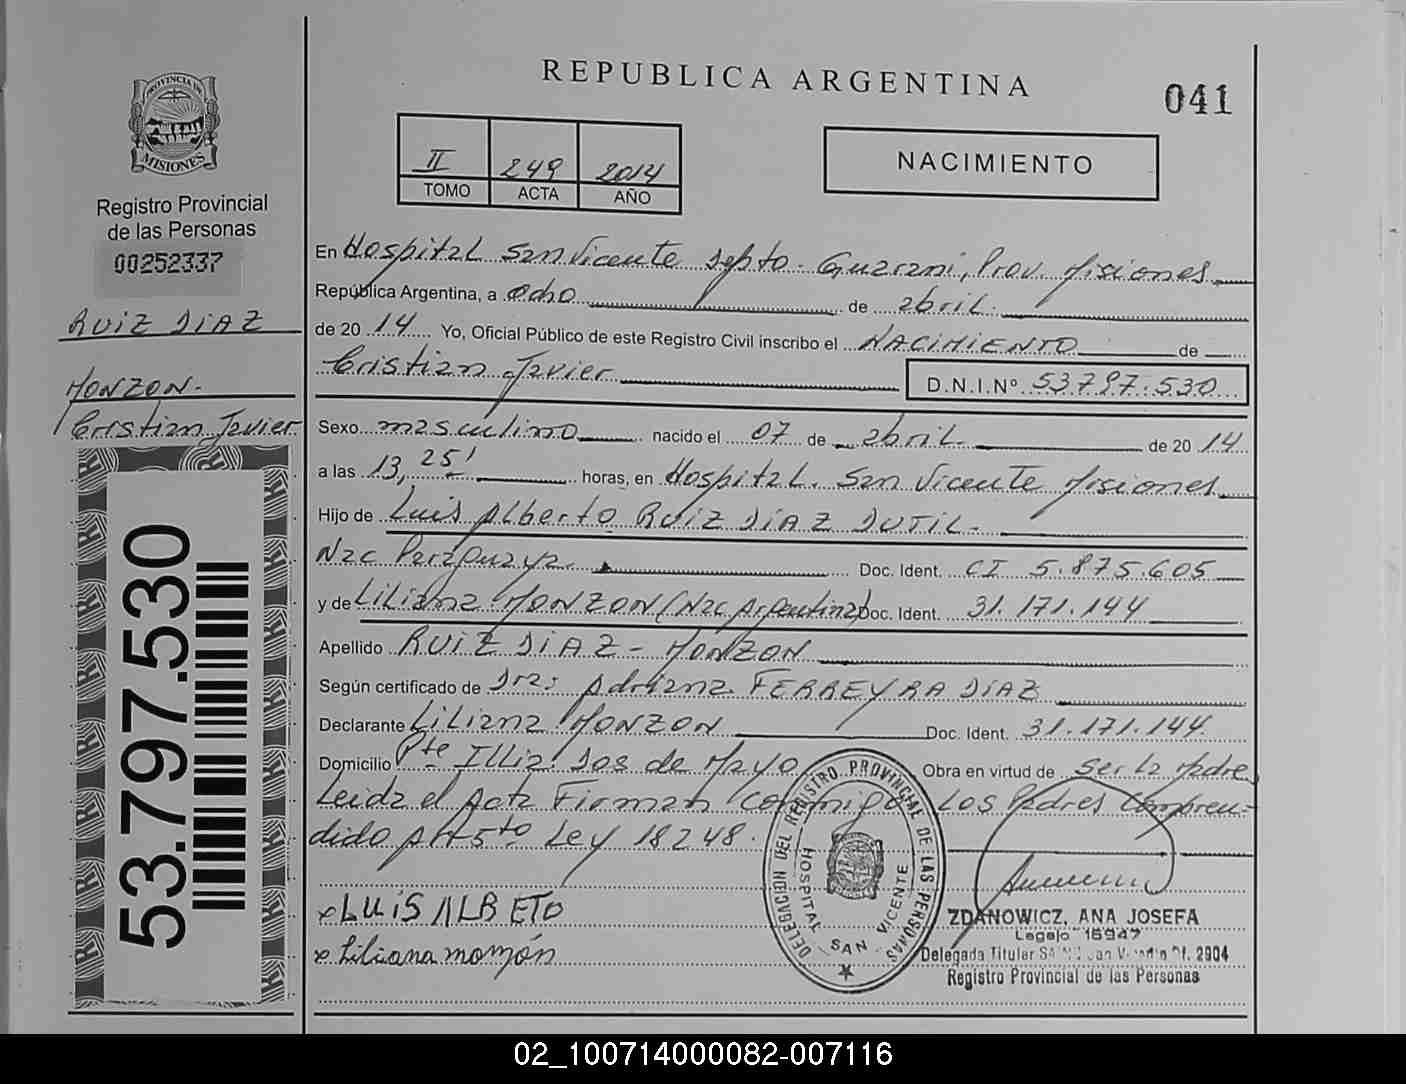 REPUBLICA ARGENTINA
041
PROVINCIA DE
MISIONES
Registro Provincial
de las Personas
00252337
RUIZ DIAZ
MONZON.
Cristian Javier
53.797.530
II 249 2014
TOMO ACTA AÑO
NACIMIENTO
En Hospital San Vicente Depto. Guarani, Prov. Misiones
República Argentina, a Ocho de abril.
de 20 14 Yo, Oficial Público de este Registro Civil inscribo el NACIMIENTO de
Cristian Javier D.N.I.Nº 53.797.530
Sexo masculino nacido el 07 de abril de 20 14
a las 13,25' horas, en Hospital San Vicente Misiones
Hijo de Luis Alberto RUIZ DIAZ DUTIL.
Nac Paraguaya. Doc. Ident. CI 5.875.605
y de Liliana MONZON (Nac Argentina) Doc. Ident. 31.171.144
Apellido RUIZ DIAZ - MONZON
Según certificado de Dra: Adriana FERREYRA DIAZ
Declarante Liliana MONZON Doc. Ident. 31.171.144.
Domicilio Pte Illia. Dos de Mayo Obra en virtud de Ser la Madre
Leida el Acta Firman conmigo Los Padres Compren-
dido p/Art 5to Ley 18248.
x LUiS ALBETO
x Liliana monzón
DELEGACION DEL REGISTRO PROVINCIAL DE LAS PERSONAS
HOSPITAL SAN VICENTE
ZDANOWICZ, ANA JOSEFA
Legajo 16947
Delegada Titular 2904
Registro Provincial de las Personas
02_100714000082-007116